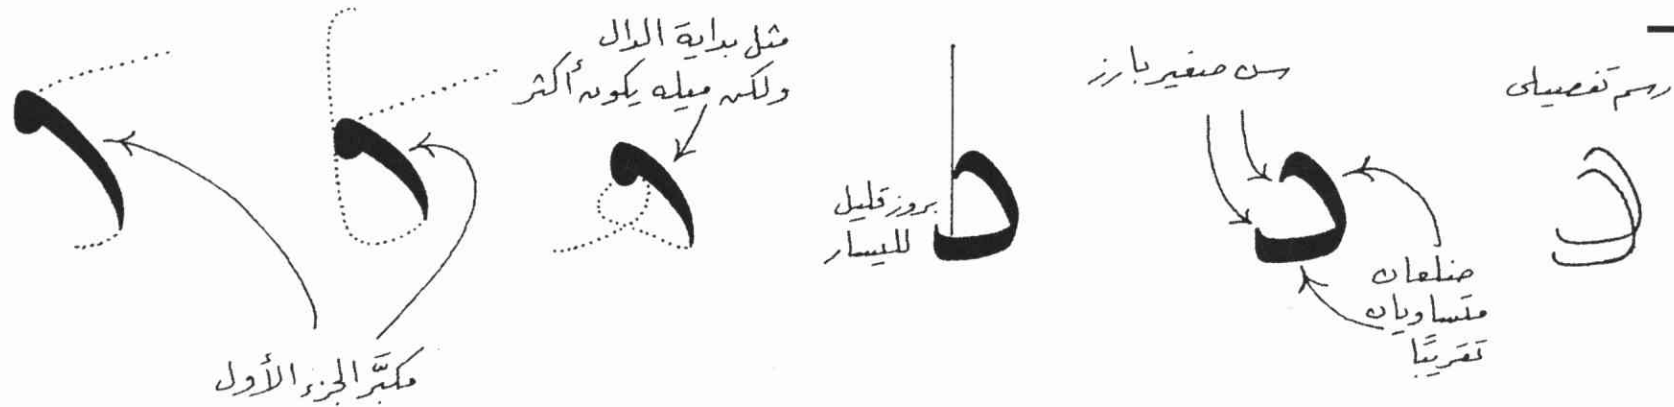 رسم تفصيلى
سن صغير بارز
ضلعان
متساويان
تقريبًا
بروز قليل
لليسار
مثل بداية الدال
ولكن ميله يكون أكثر
مكبَّر الجزء الأول